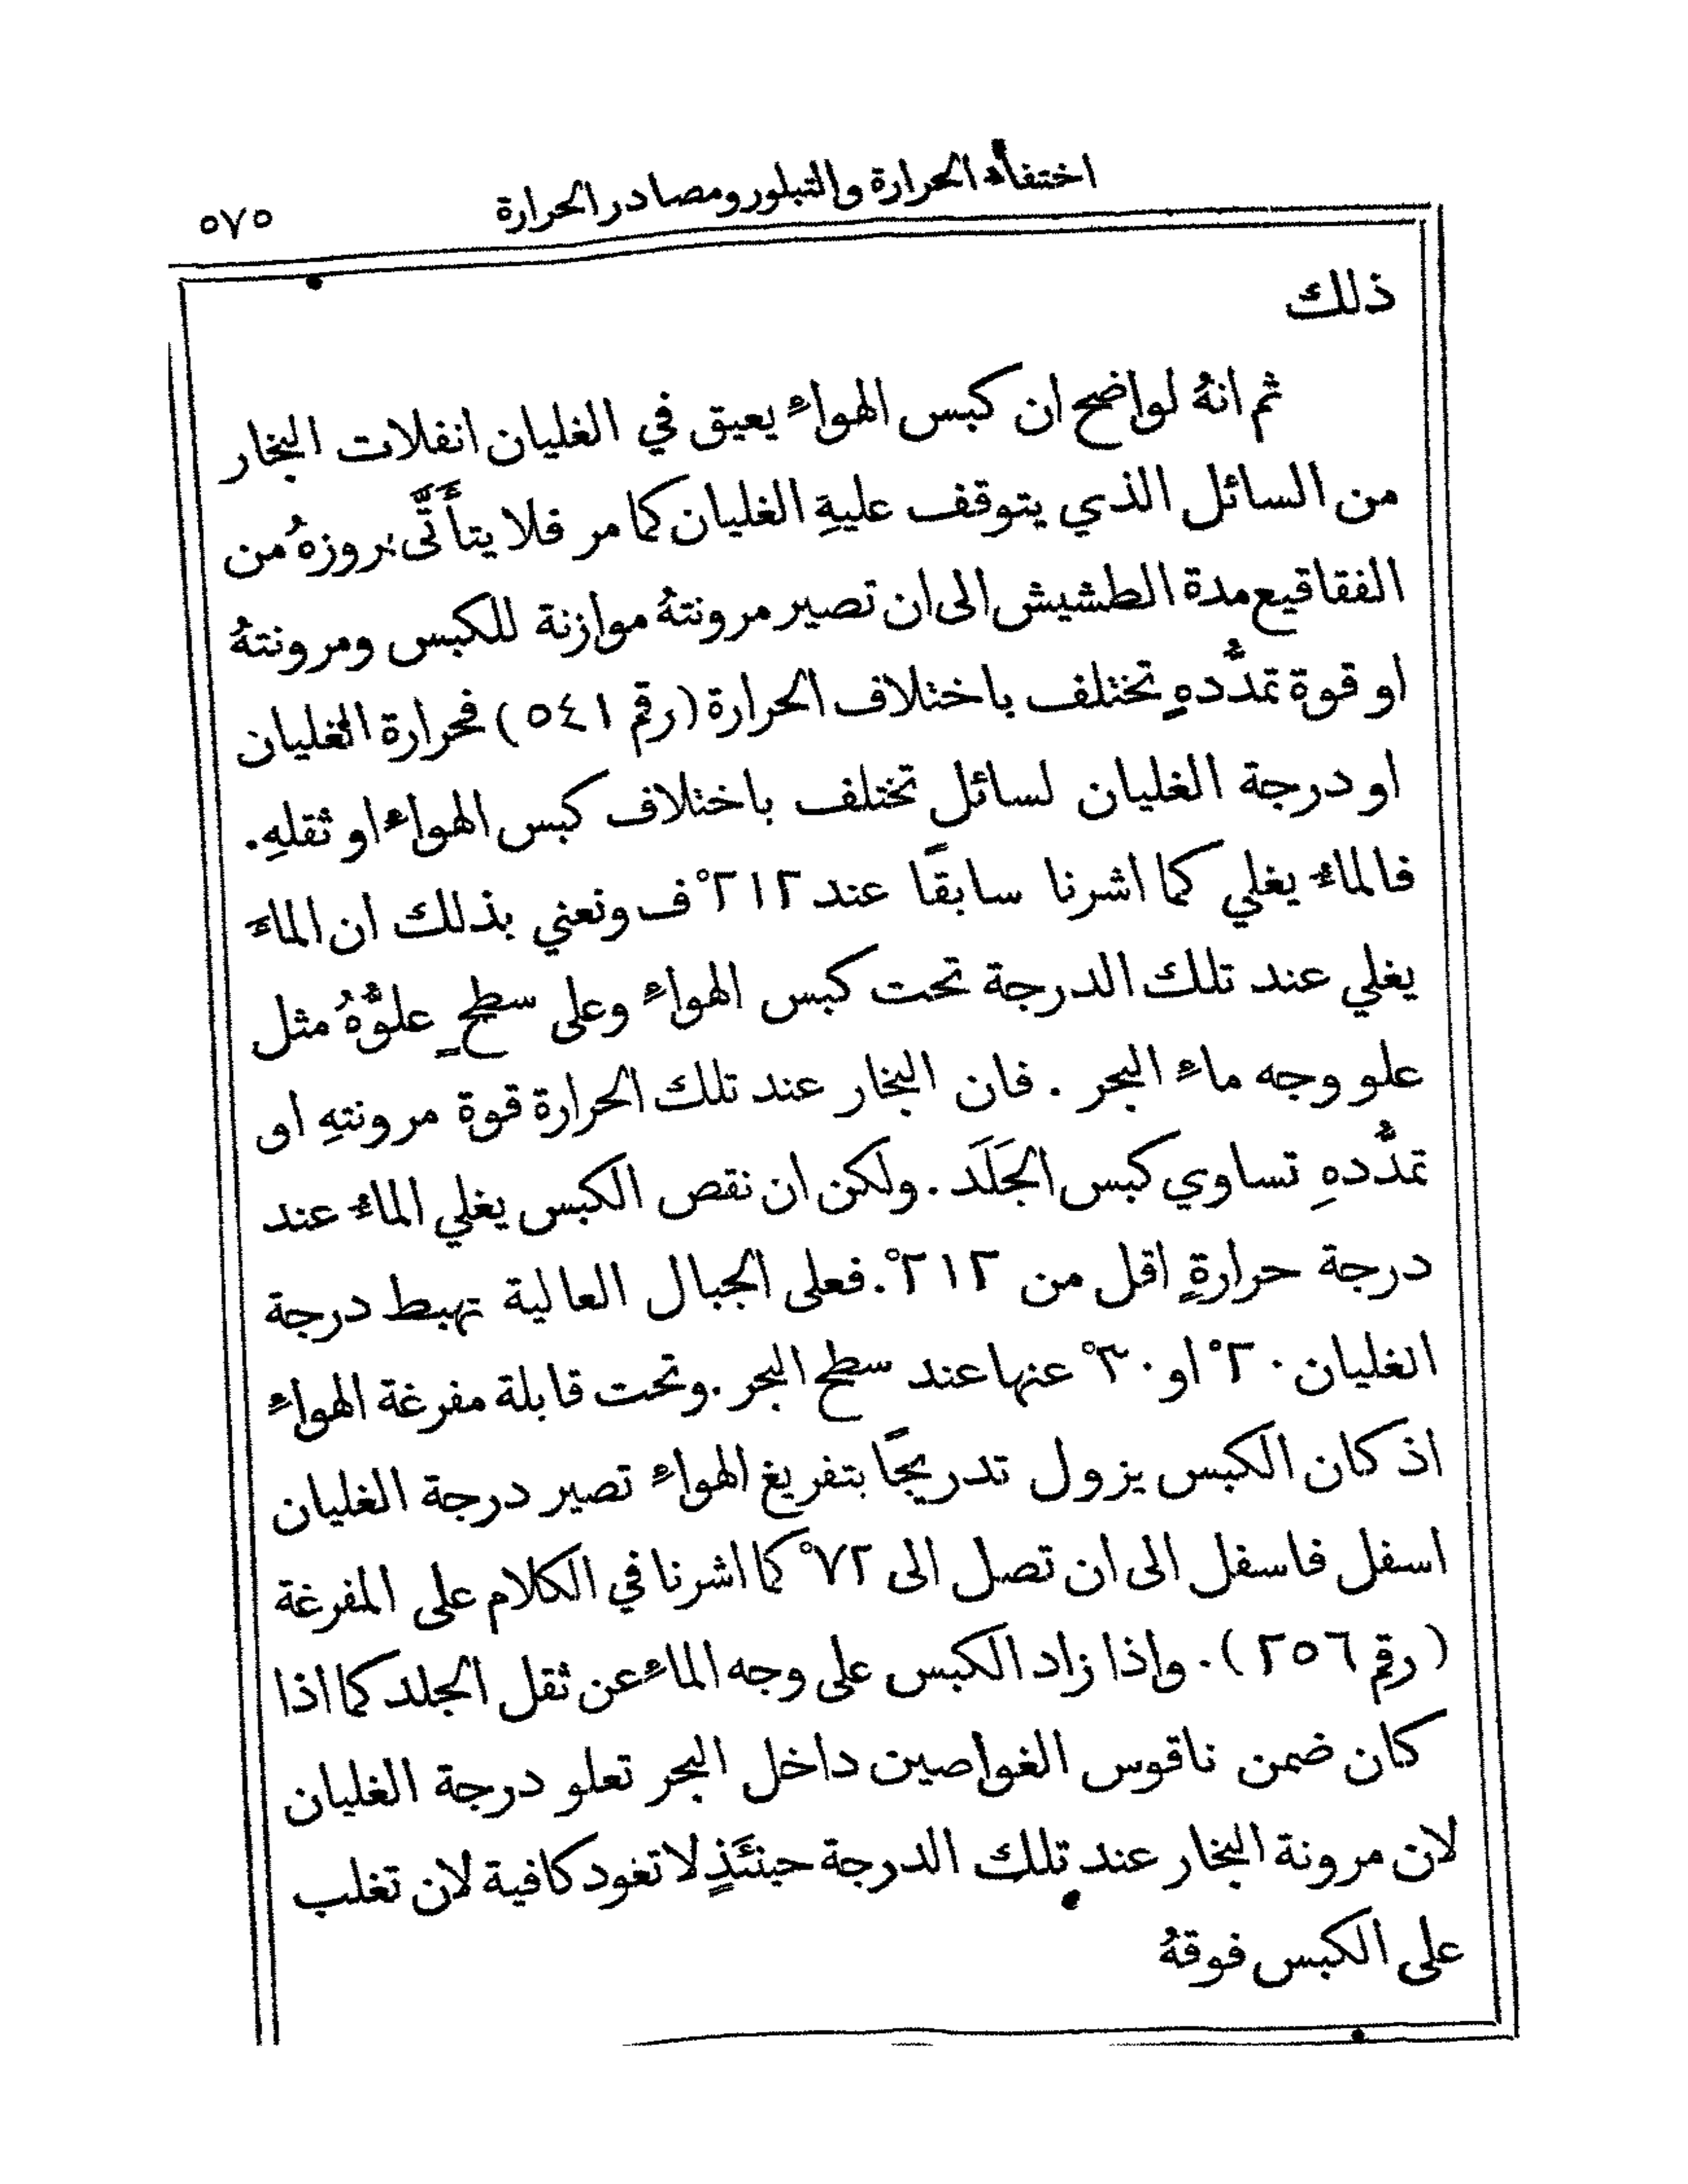 اختفاء الحرارة والتبلور ومصادر الحرارة
٥٧٥
ذلك
ثم انهُ لواضح ان كبس الهواءِ يعيق في الغليان انفلات البخار
من السائل الذي يتوقف عليهِ الغليان كما مر فلا يتأَتَّى بروزهُ من
الفقاقيع مدة الطشيش الى ان تصير مرونتهُ موازنة للكبس ومرونتهُ
او قوة تمدُّدهِ تختلف باختلاف الحرارة (رقم ٥٤١) فحرارة الغليان
او درجة الغليان لسائلٍ تختلف باختلاف كبس الهواءِ او ثقلهِ.
فالماءُ يغلي كما اشرنا سابقًا عند ٢١٢° ف ونعني بذلك ان الماءَ
يغلي عند تلك الدرجة تحت كبس الهواءِ وعلى سطحٍ علوُّهُ مثل
علو وجه ماءِ البحر. فان البخار عند تلك الحرارة قوة مرونتهِ او
تمدُّدهِ تساوي كبس الجَلَد. ولكن ان نقص الكبس يغلي الماءُ عند
درجة حرارةٍ اقل من ٢١٢°. فعلى الجبال العالية تهبط درجة
الغليان ٢٠° او ٣٠° عنها عند سطح البحر. وتحت قابلة مفرغة الهواءِ
اذ كان الكبس يزول تدريجًا بتفريغ الهواءِ تصير درجة الغليان
اسفل فاسفل الى ان تصل الى ٧٢° كما اشرنا في الكلام على المفرغة
(رقم ٢٥٦). واذا زاد الكبس على وجه الماءِ عن ثقل الجلد كما اذا
كان ضمن ناقوس الغواصين داخل البحر تعلو درجة الغليان
لان مرونة البخار عند تلك الدرجة حينئذٍ لا تعود كافية لان تغلب
على الكبس فوقهُ